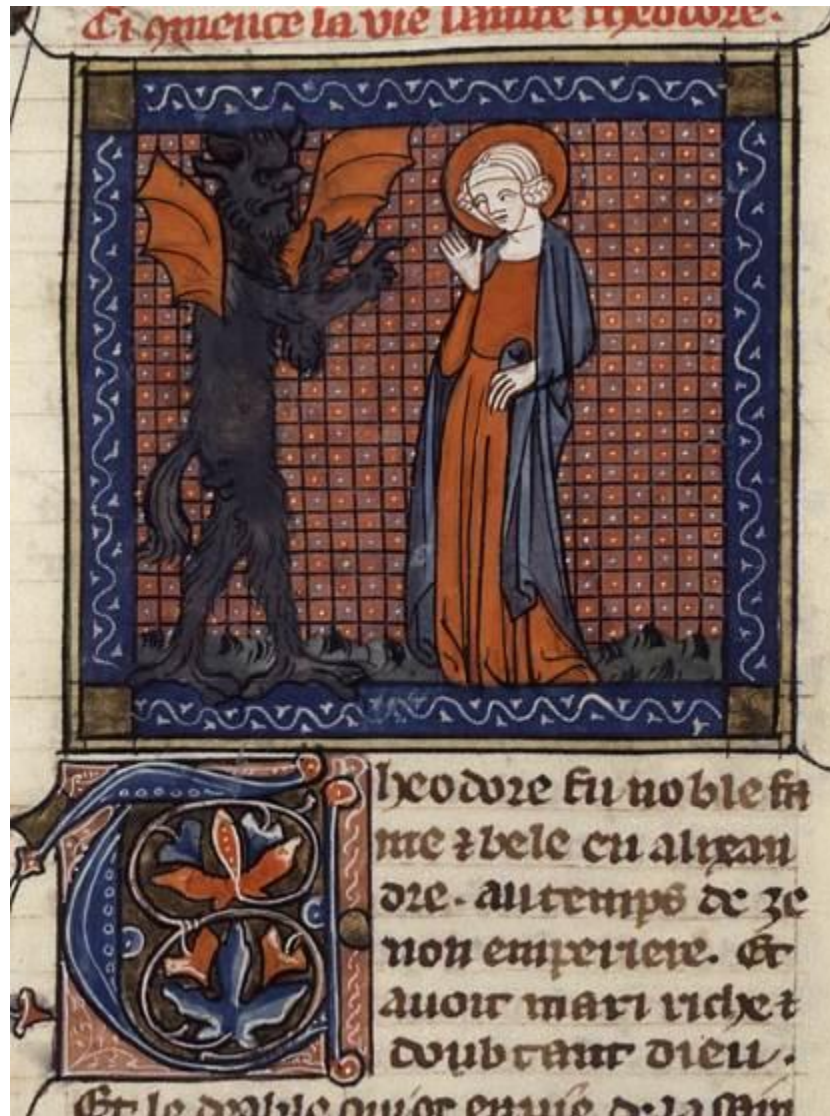 Ci ɔmence la vie sainte theodore.
Theodore fu noble fa
me ⁊ bele en alixan
dre. au temps de ze
non emperiere. Et
auoit mari riche ⁊
doubtant dieu.
Et le dyable qui ot enuie de la sain